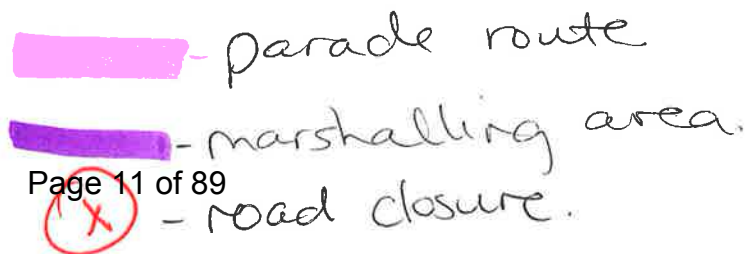 - parade route
- marshalling area.
Page 11 of 89
X - road closure.